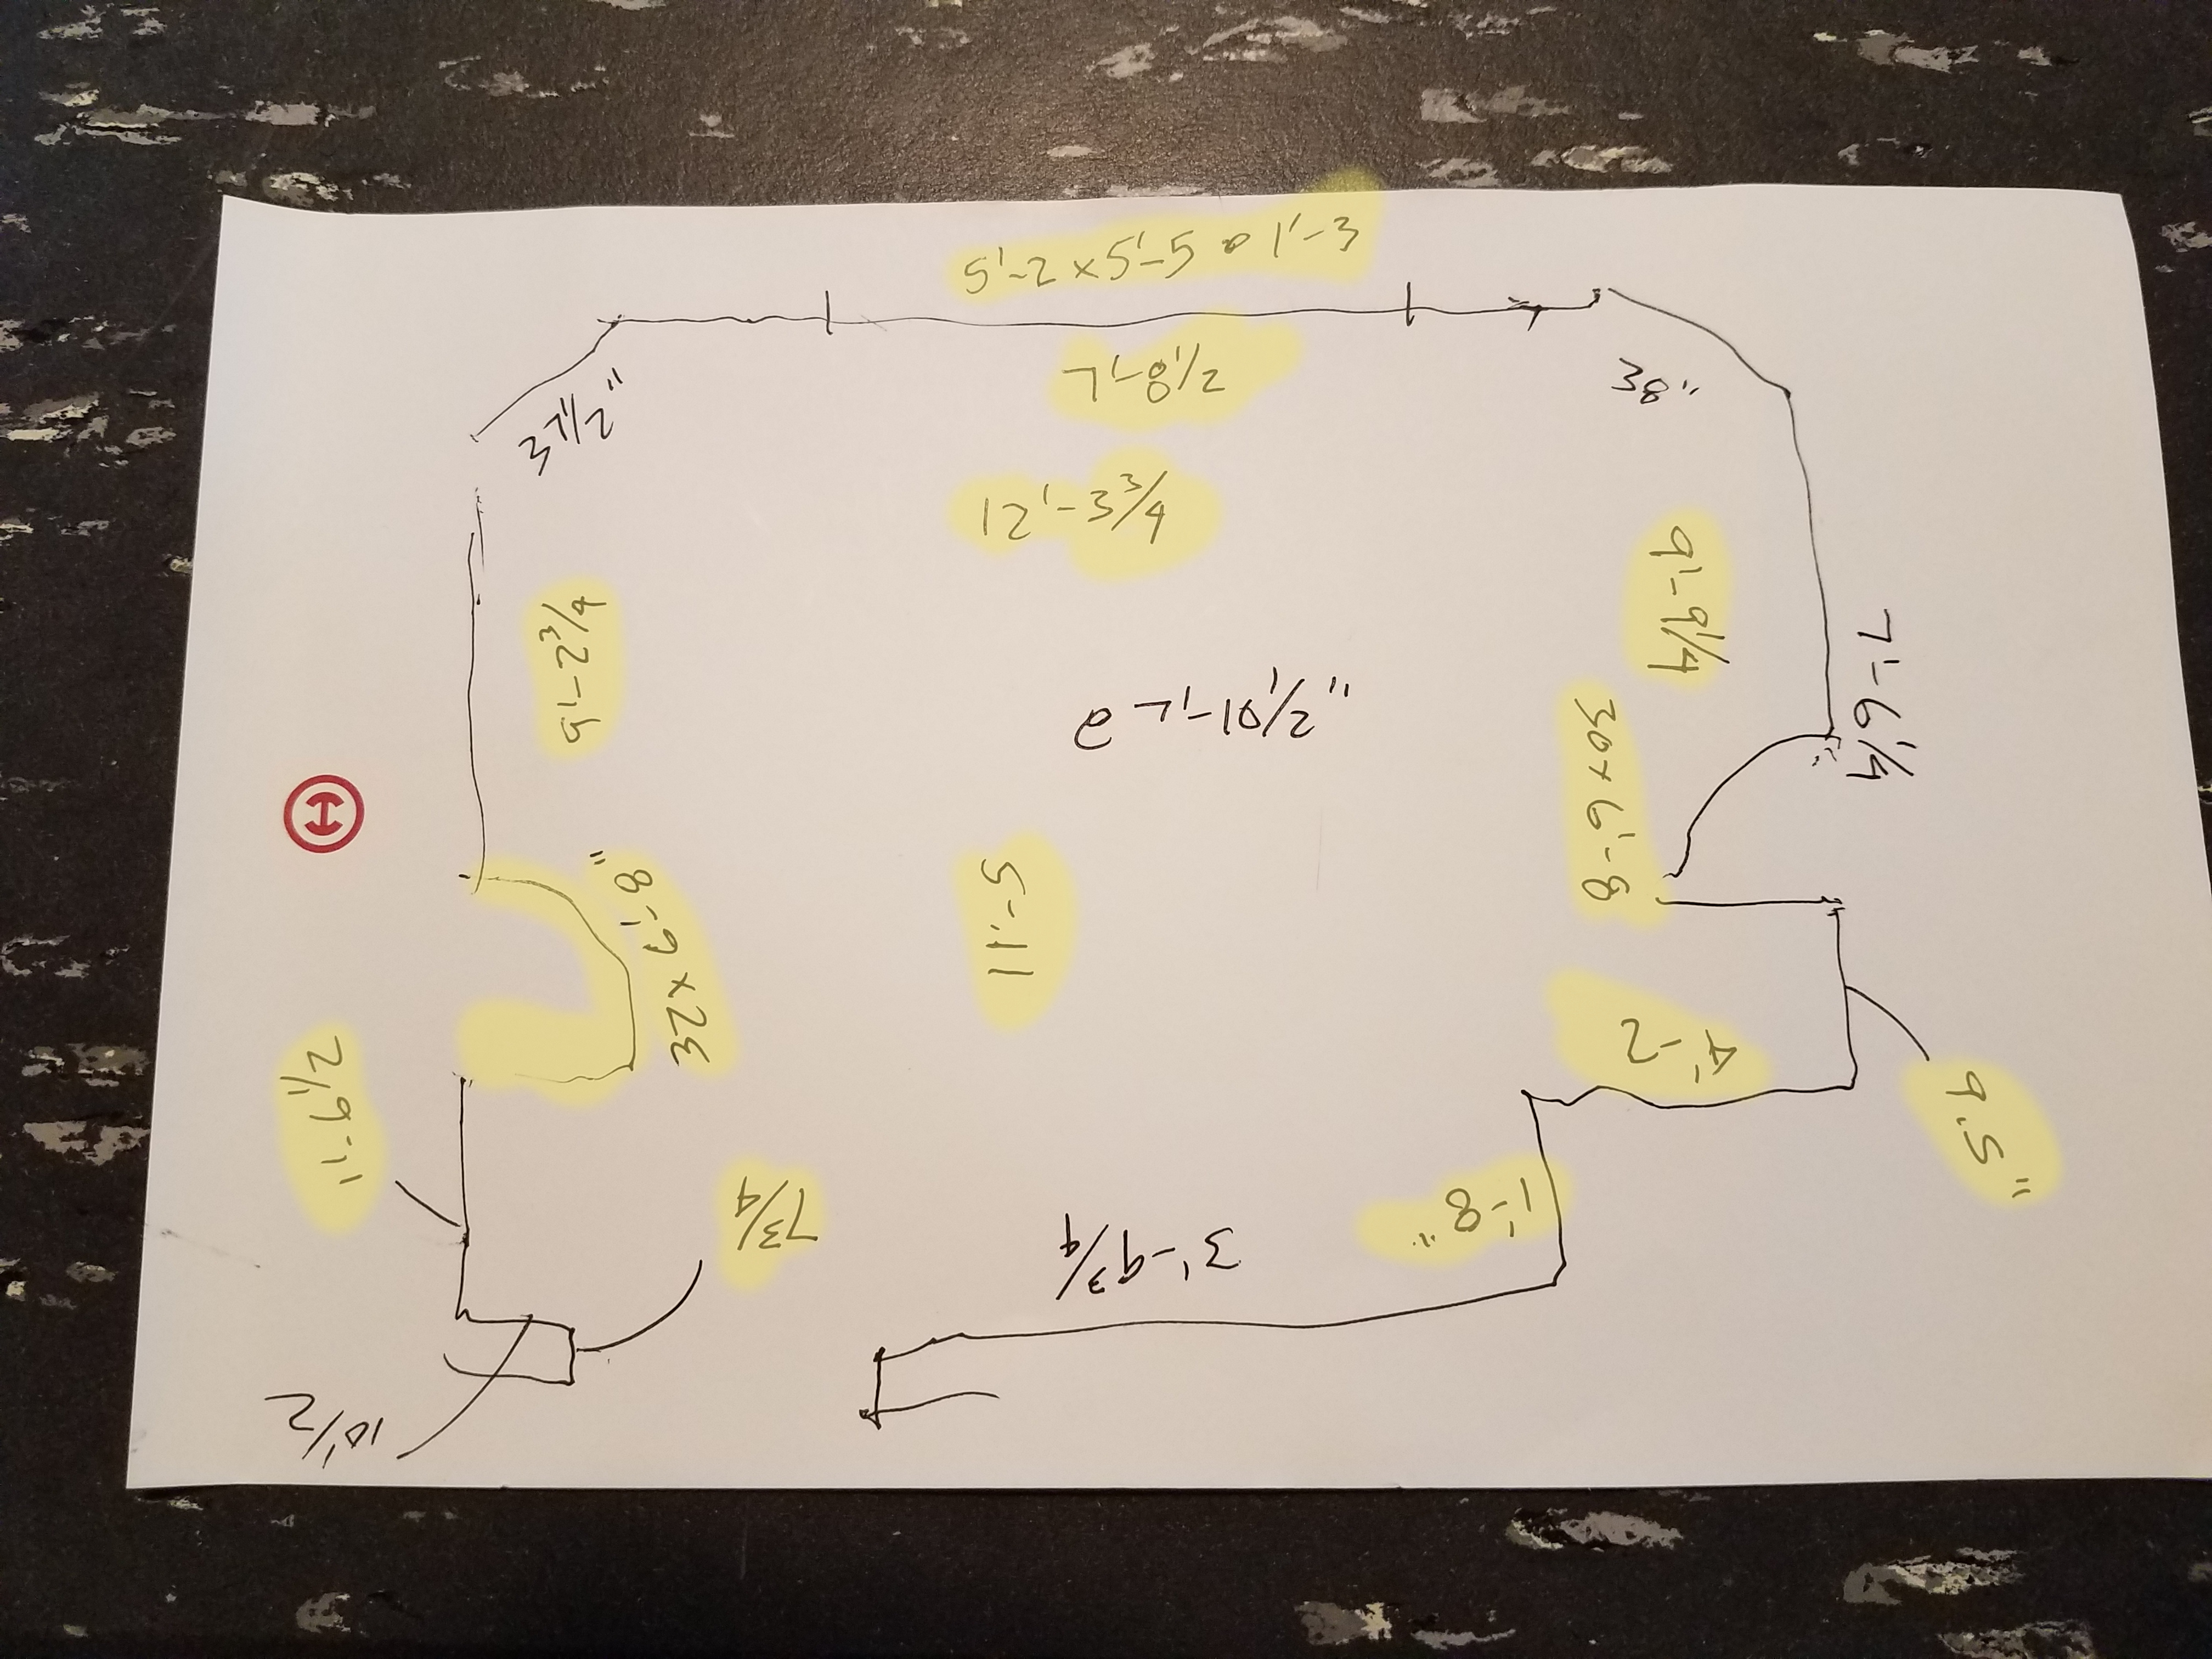 5'-2 x 5'-5 @ 1'-3
7'-8 1/2
37 1/2"
38"
12'-3 3/4
9'-9 1/4
5'-2 3/4
7'-6 1/4
@ 7'-10 1/2"
30 x 6'-8
32 x 6'-8"
11'-5
4'-2
9.5"
1'-6 1/2
7 3/4
1'-8"
3'-9 3/4
10 1/2